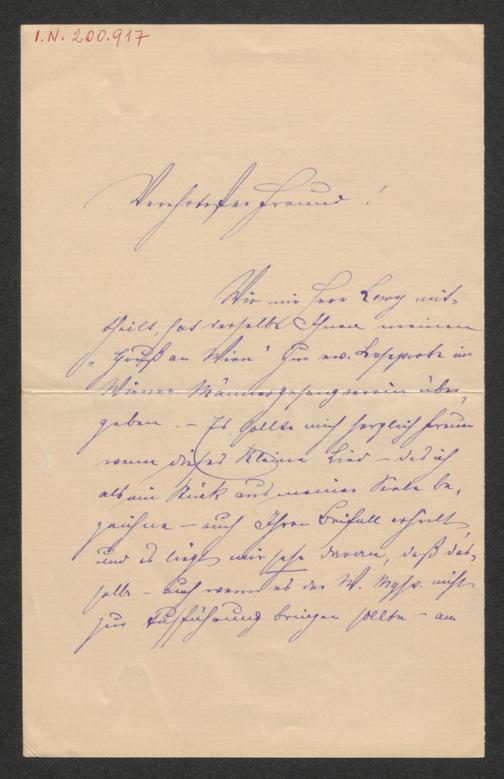 I.N. 200.917
Verehrtester Freund!
Wie mir Herr Lewy mit-
theilt, hat derselbe Ihnen meinen
„Gruß an Wien" zur ev. Leseprobe im
Wiener Männergesangverein über-
geben. – Es sollte mich herzlich freuen
wenn dieses kleine Lied – das ich
als ein Stück aus meiner Seele be-
zeichne – auch Ihren Beifall erhielt,
und es liegt mir sehr daran, daß das-
selbe – auch wenn es der W. Mgsv. nicht
zur Aufführung bringen sollte – am